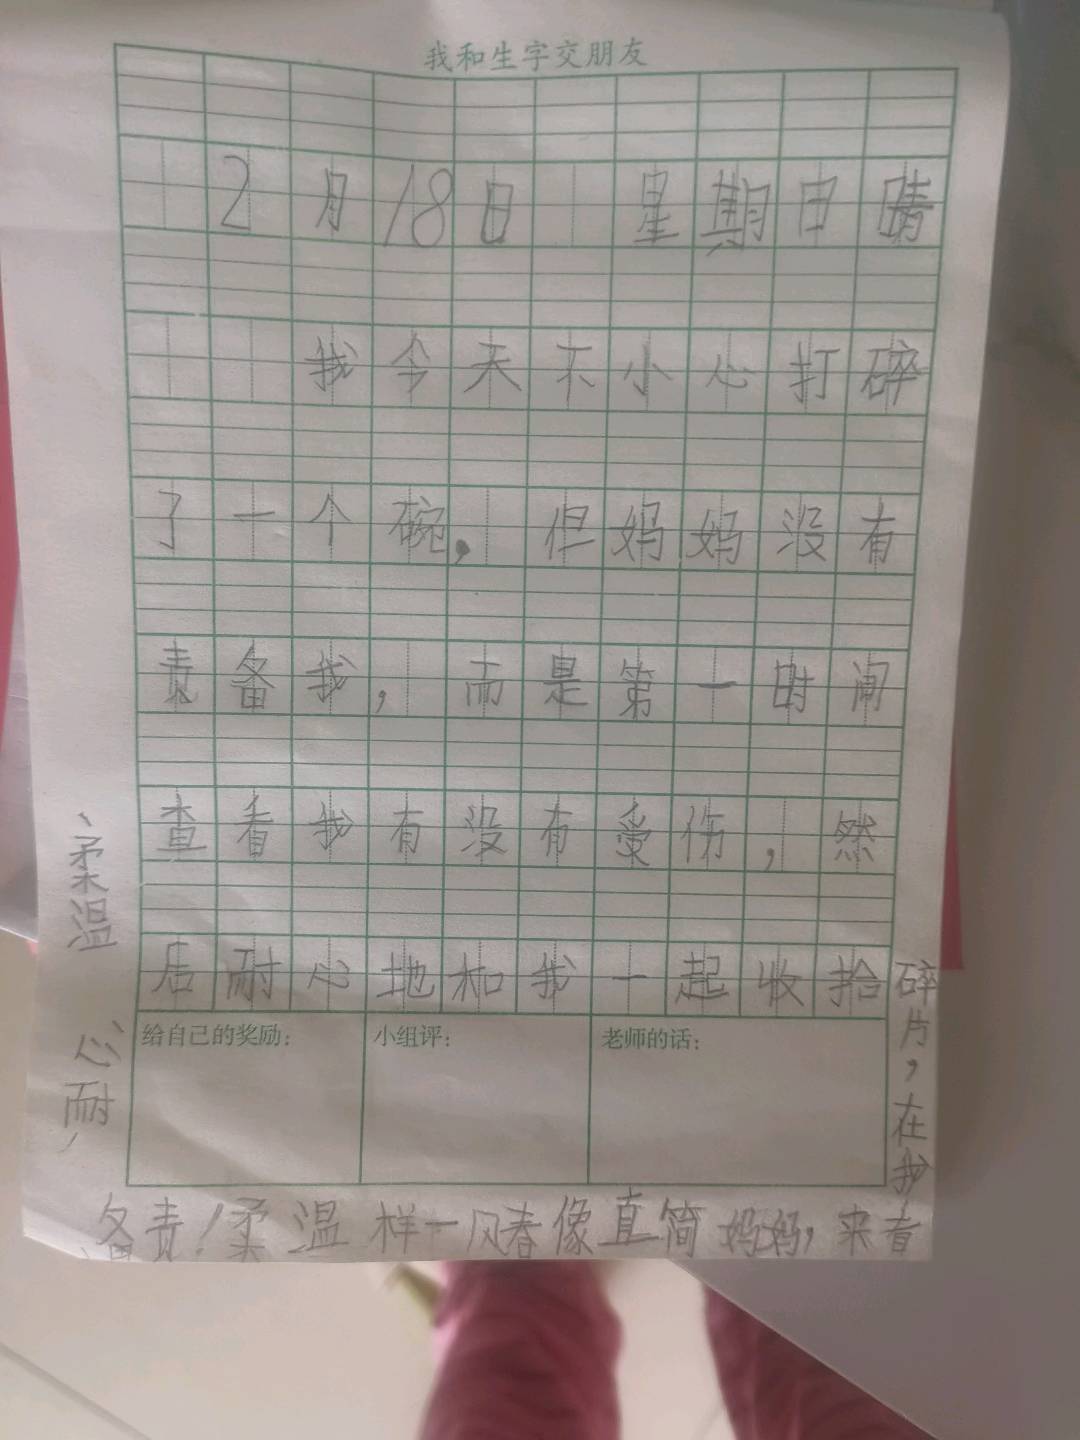 我和生字交朋友
2月18日 星期日晴
我今天不小心打碎
了一个碗,但妈妈没有
责备我,而是第一时间
查看我有没有受伤,然
后耐心地和我一起收拾
碎片,在我
看来,妈妈简直像春风一样温柔!责备
、耐心
、温柔
给自己的奖励:
小组评:
老师的话: